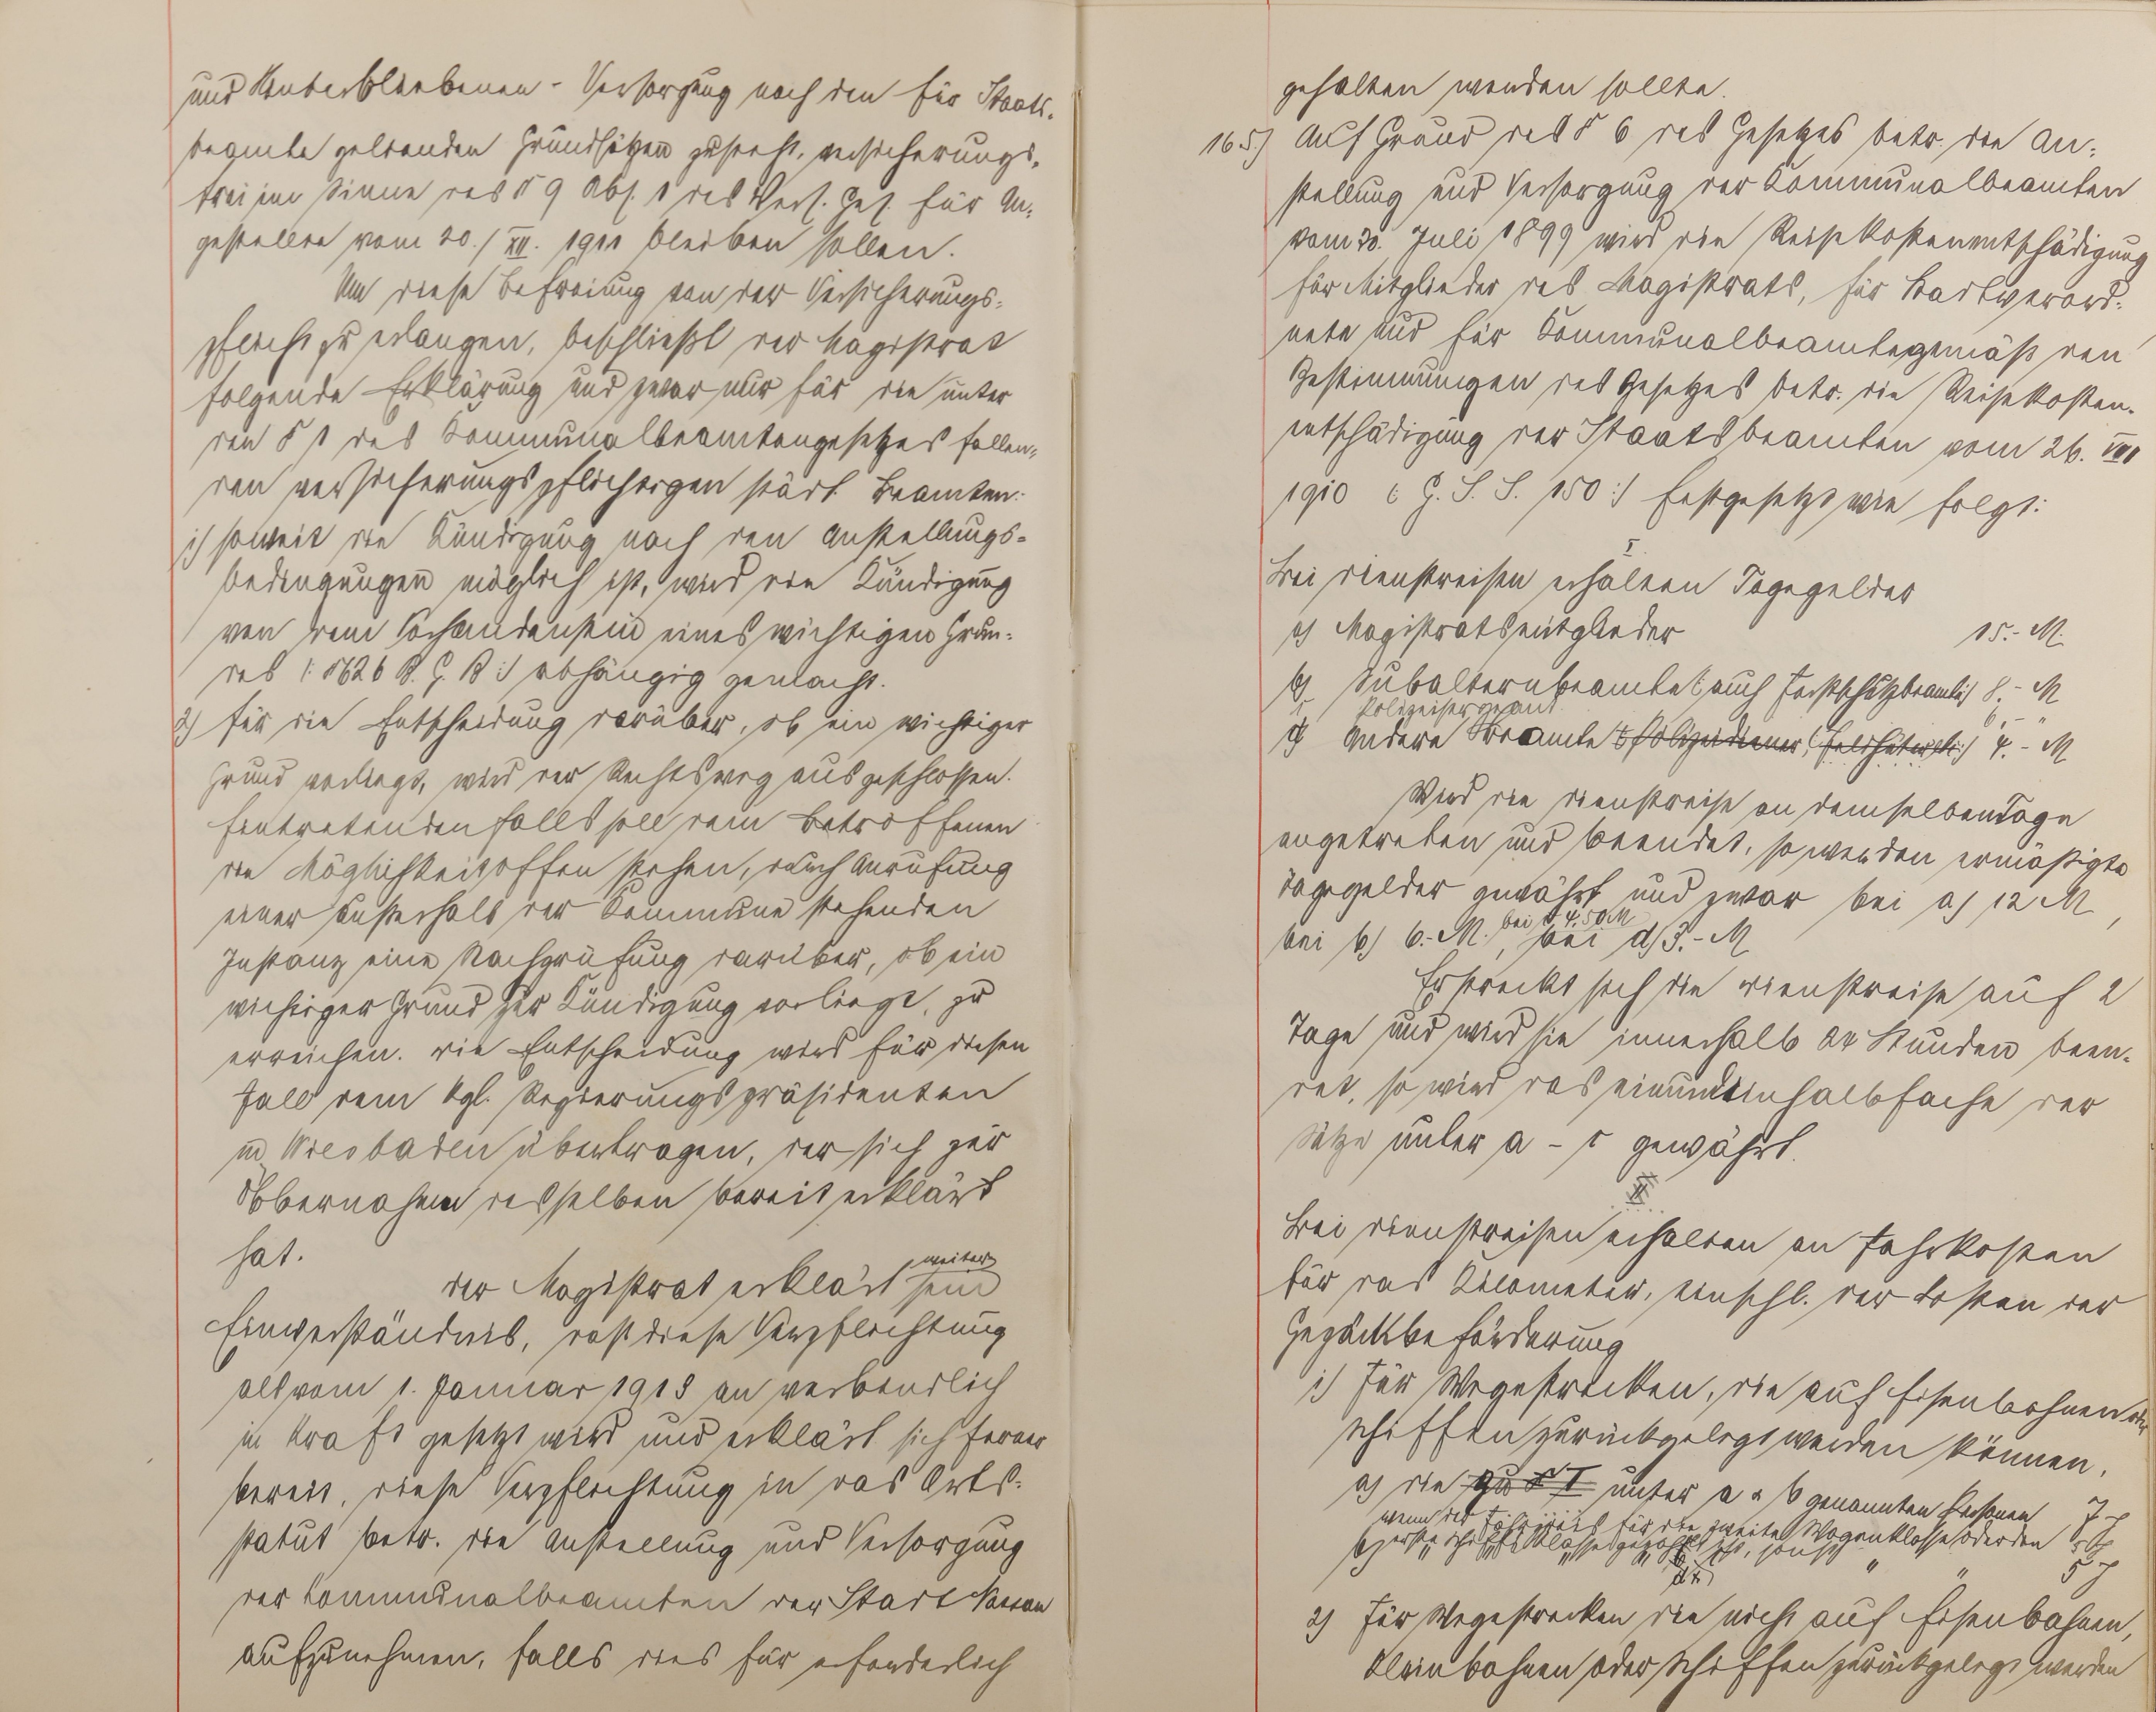 und Hinterbliebenen-Versorgung nach den für Staats-
beamte geltenden Grundsätzen zusteht, versicherungs-
frei im Sinne des § 9 Abs. 1 des Vers. Ges. für An-
gestellte vom 20./XII. 1911 bleiben sollen.
Um diese Befreiung von der Versicherungs-
pflicht zu erlangen, beschließt der Magistrat
folgende Erklärung und zwar nur für die unter
den § 1 des Kommunalbeamtengesetzes fallen-
den versicherungspflichtigen städt. Beamten:
1) soweit die Kündigung nach den Anstellungs-
bedingungen möglich ist, wird die Kündigung
von dem Vorhandensein eines wichtigen Grun-
des (: § 626 B. G. B :) abhängig gemacht.
2) für die Entscheidung darüber, ob ein wichtiger
Grund vorliegt, wird der Rechtsweg ausgeschlossen.
Eintretendenfalls soll dem Betroffenen
die Möglichkeit offen stehen, durch Anrufung
einer außerhalb der Kommune stehenden
Instanz eine Nachprüfung darüber, ob ein
wichtiger Grund zur Kündigung vorliegt, zu
erreichen. Die Entscheidung wird für diesen
Fall dem Kgl. Regierungspräsidenten
in Wiesbaden übertragen, der sich zur
Übernahme desselben bereit erklärt
hat.
Der Magistrat erklärt weiter sein
Einverständnis, daß diese Verpflichtung
als vom 1. Januar 1913 an verbindlich
in Kraft gesetzt wird und erklärt sich ferner
bereit, diese Verpflichtung in das Orts-
statut betr. die Anstellung und Versorgung
der Kommunalbeamten der Stadt Nassau
aufzunehmen, falls dies für erforderlich
gehalten werden sollte.
165.) Auf Grund des § 6 des Gesetzes betr. die An-
stellung und Versorgung der Kommunalbeamten
vom 30. Juli 1899 wird die Reisekostenentschädigung
für Mitglieder des Magistrats, für Stadtverord-
nete und für Kommunalbeamte gemäß den
Bestimmungen des Gesetzes betr. die Reisekosten-
entschädigung der Staatsbeamten vom 26. VII
1910 (: G. S. S. 150 :) festgesetzt wie folgt:
I
Bei Dienstreisen erhalten Tagegelder
a) Magistratsmitglieder 15.- M.
b) Subalternbeamte (: auch Forstschutzbeamte :) 8.- M
c Polizeisergeant 6.- "
d) Andere Beamte (: Polizeidiener, Feldhüter etc :) 4.- M
Wird die Dienstreise an demselben Tage
angetreten und beendet, so werden ermäßigte
Tagegelder gewährt und zwar bei a) 12 M,
bei b) 6.- M. bei c 4.50 M, bei d) 3.- M
Erstreckt sich die Dienstreise auf 2
Tage und wird sie innerhalb 24 Stunden been-
det, so wird das einundeinhalbfache der
Sätze unter a - c gewährt.
II
Bei Dienstreisen erhalten an Fahrkosten
für das Kilometer, einschl. der Kosten der
Gepäckbeförderung
1) Für Wegestrecken, die auf Eisenbahnen oder
Schiffen zurückgelegt werden können,
a) die zu § I unter a u b genannten Personen 7
wenn der Fahrpreis für die zweite Wagenklasse oder den
erste Schiffsklasse gezahlt ist, sonst 5
2) Für Wegestrecken die nicht auf Eisenbahnen,
Kleinbahnen oder Schiffen zurückgelegt werden